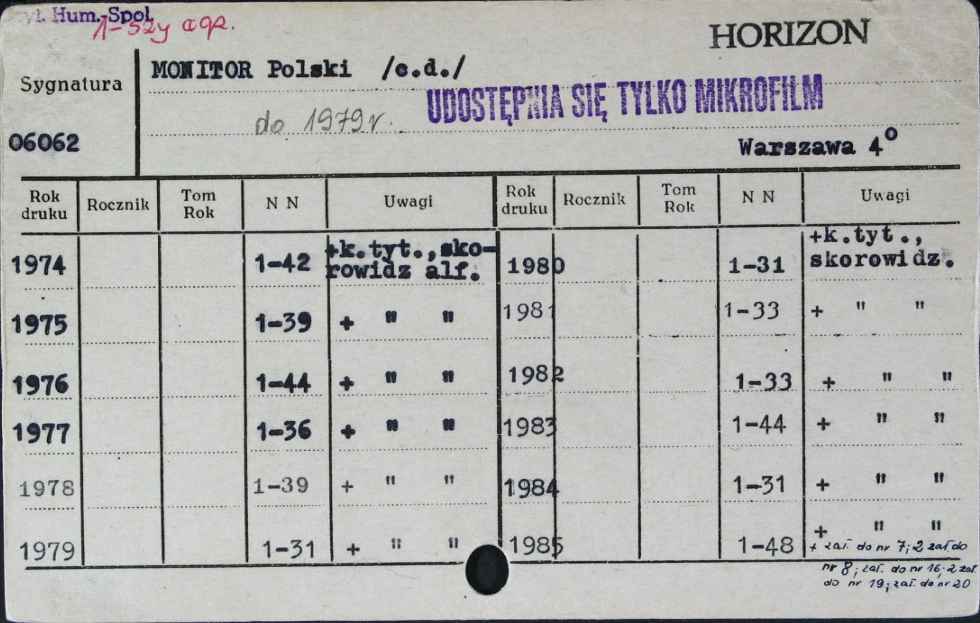 Czyt. Hum.-Społ.
1-szy egz.
HORIZON
Sygnatura
MONITOR Polski /c.d./
UDOSTĘPNIA SIĘ TYLKO MIKROFILM
do 1979 r.
06062
Warszawa 4°
Rok druku Rocznik Tom Rok N N Uwagi Rok druku Rocznik Tom Rok N N Uwagi
1974 1-42 +k.tyt.,sko-
rowidz alf.
1980 1-31 +k.tyt.,
skorowidz.
1975 1-39 + " " 1981 1-33 + " "
1976 1-44 + " " 1982 1-33 + " "
1977 1-36 + " " 1983 1-44 + " "
1978 1-39 + " " 1984 1-31 + " "
1979 1-31 + " " 1985 1-48 + " "
+ zał. do nr 7; 2 zał. do
nr 8; zał. do nr 16; 2 zał.
do nr 19; zał. do nr 20